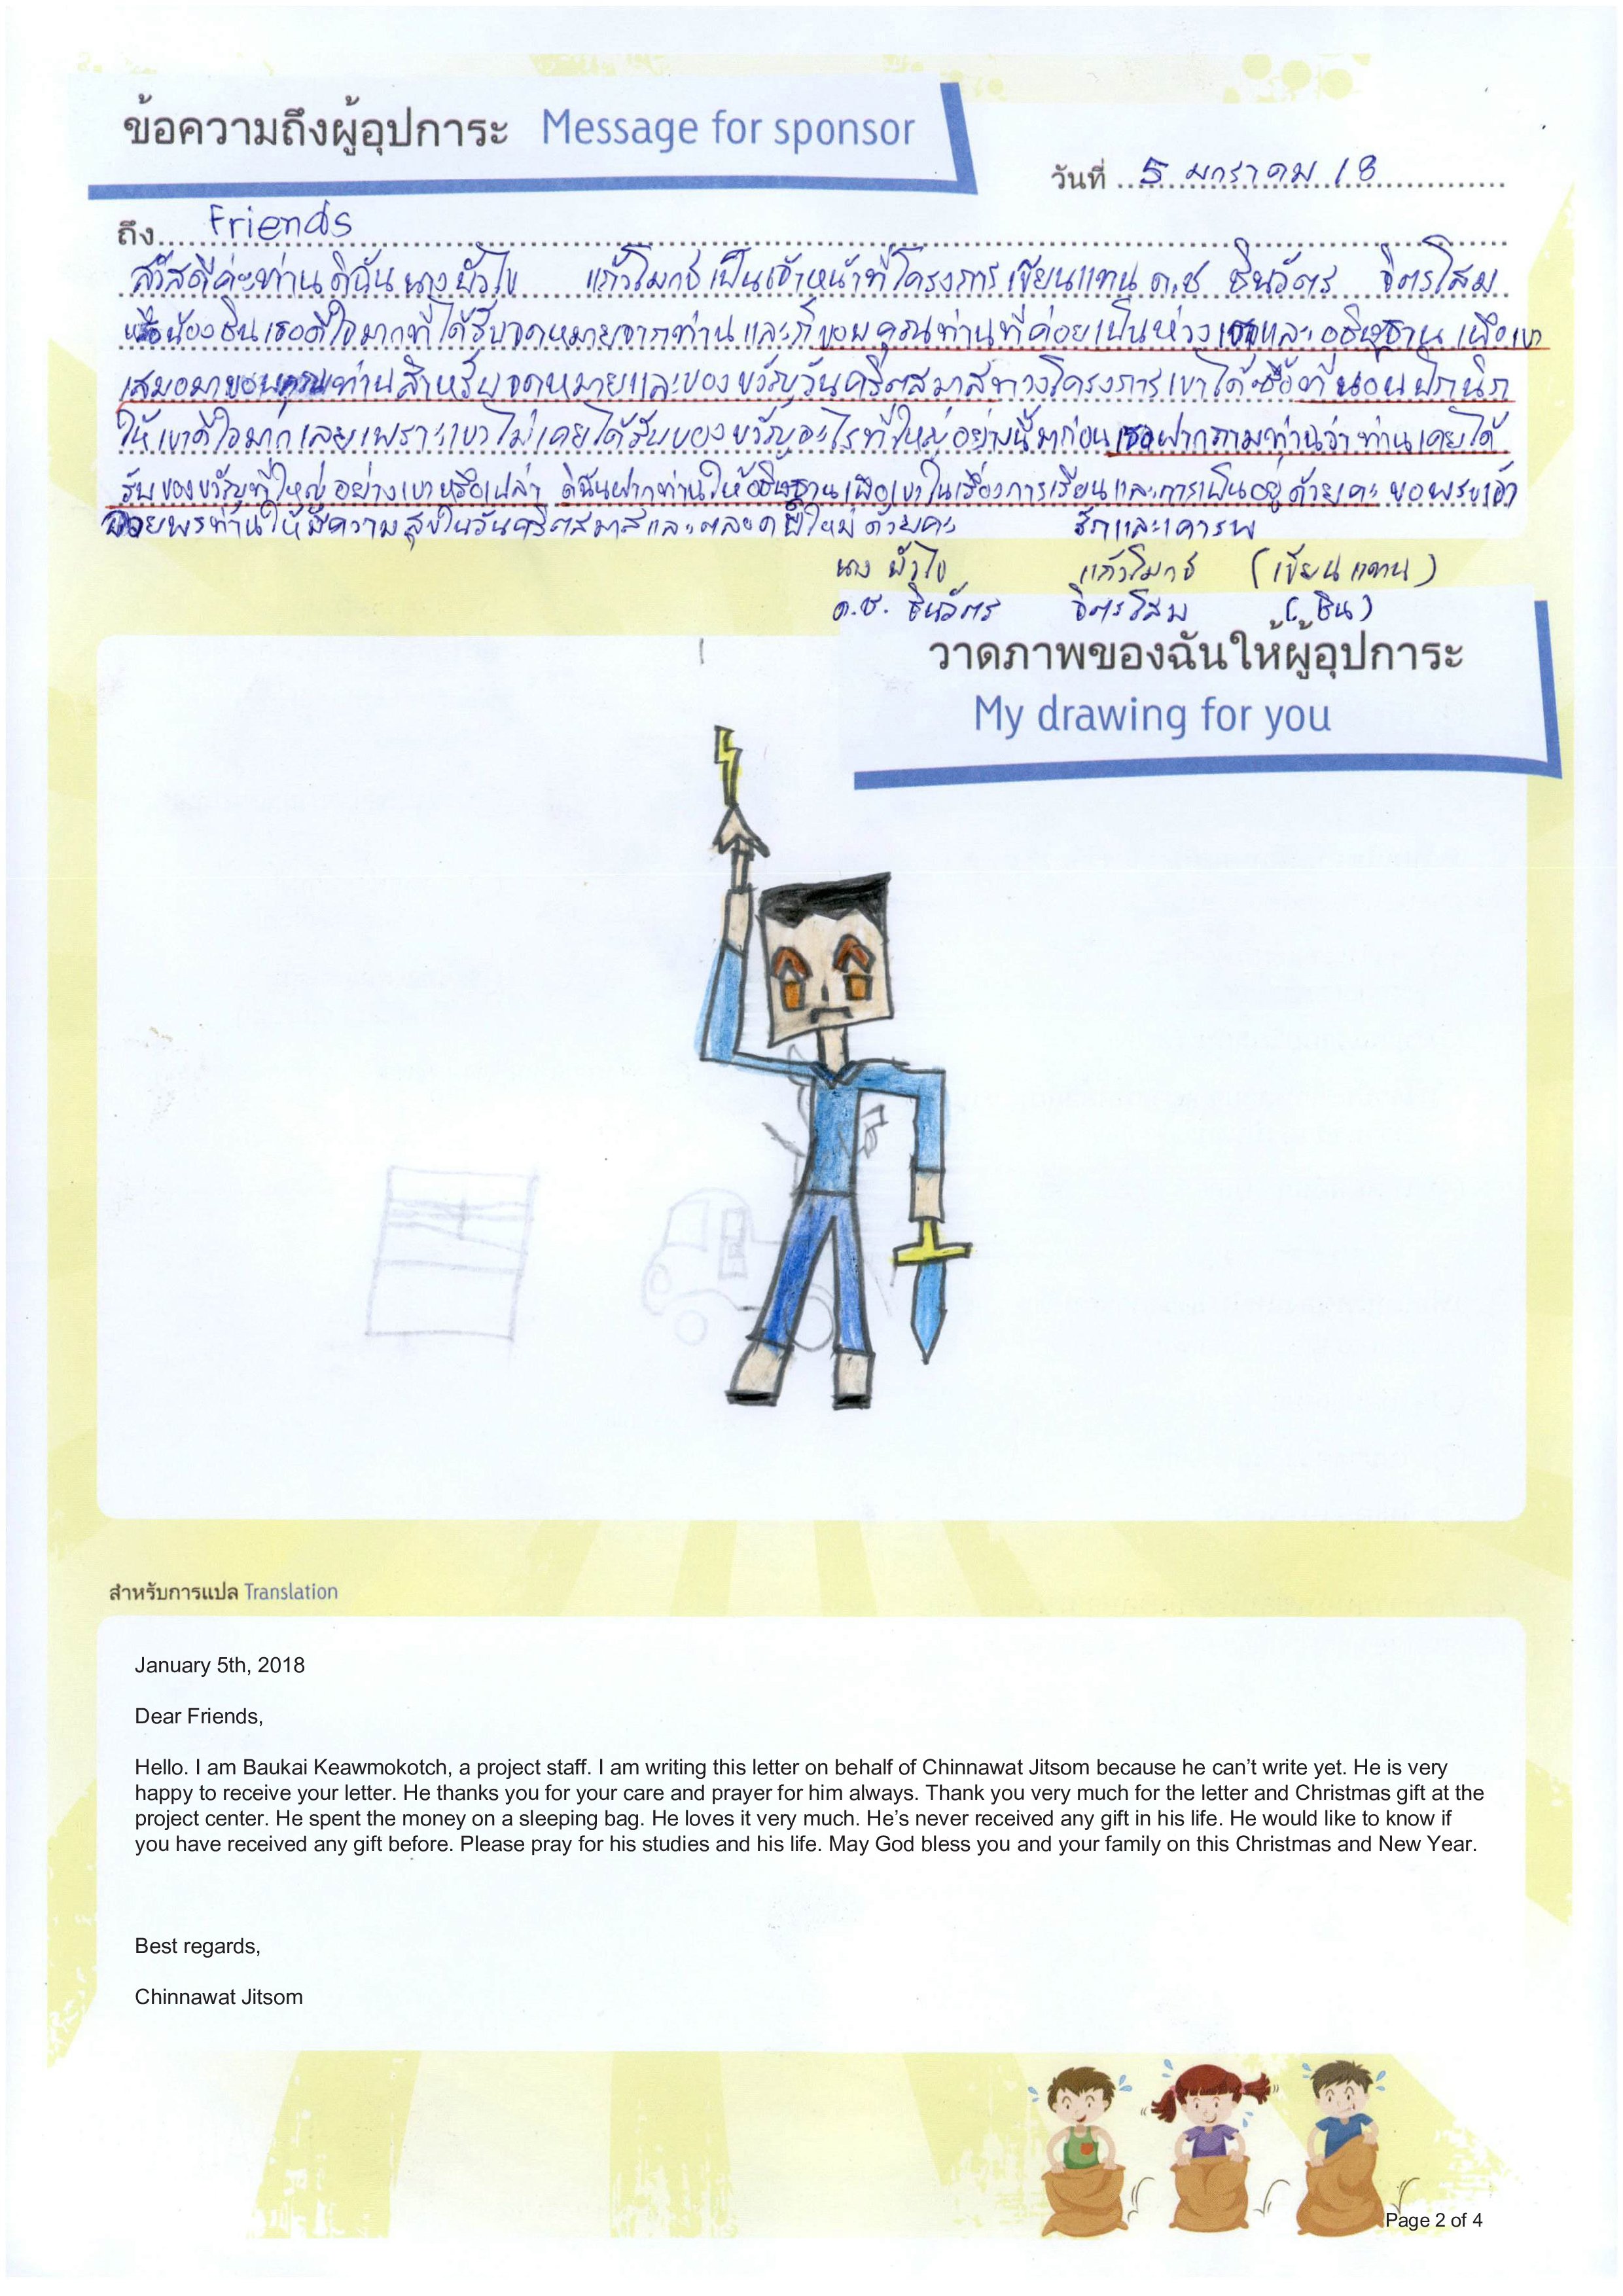 ข้อความถึงผู้อุปการะ Message for sponsor
วันที่ 5 มกราคม 18
ถึง Friends
สวัสดีค่ะท่าน ดิฉัน นาง บัวไข แก้วโมกช์ เป็นเจ้าหน้าที่โครงการ เขียนแทน ด.ช ชินวัตร จิตรโสม
น้องชิน เธอดีใจมากที่ได้รับจดหมายจากท่าน และก็ขอบคุณท่านที่ค่อยเป็นห่วง เธอและอธิษฐาน เผื่อเขา
เสมอมา ขอบคุณท่านสำหรับจดหมายและของขวัญวันคริตสมาสทางโครงการเขาได้ซื้อที่นอนปิกนิก
ให้เขาดีใจมากเลยเพราะเขาไม่เคยได้รับของขวัญอะไรที่ใหญ่อย่างนี้มาก่อน เธอฝากถามท่านว่าท่านเคยได้
รับของขวัญที่ใหญ่อย่างเขาหรือเปล่า ดิฉันฝากท่านให้อธิษฐานเผื่อเขาในเรื่องการเรียนและการเป็นอยู่ด้วยคะ ขอพระเจ้า
อวยพรท่านให้มีความสุขในวันคริตสมาสและตลอดปีใหม่ด้วยคะ รักและเคารพ
นาง บัวไข แก้วโมกช์ (เขียนแทน)
ด.ช. ชินวัตร จิตรโสม (ชิน)
วาดภาพของฉันให้ผู้อุปการะ
My drawing for you
สำหรับการแปล Translation
January 5th, 2018
Dear Friends,
Hello. I am Baukai Keawmokotch, a project staff. I am writing this letter on behalf of Chinnawat Jitsom because he can’t write yet. He is very
happy to receive your letter. He thanks you for your care and prayer for him always. Thank you very much for the letter and Christmas gift at the
project center. He spent the money on a sleeping bag. He loves it very much. He’s never received any gift in his life. He would like to know if
you have received any gift before. Please pray for his studies and his life. May God bless you and your family on this Christmas and New Year.
Best regards,
Chinnawat Jitsom
Page 2 of 4